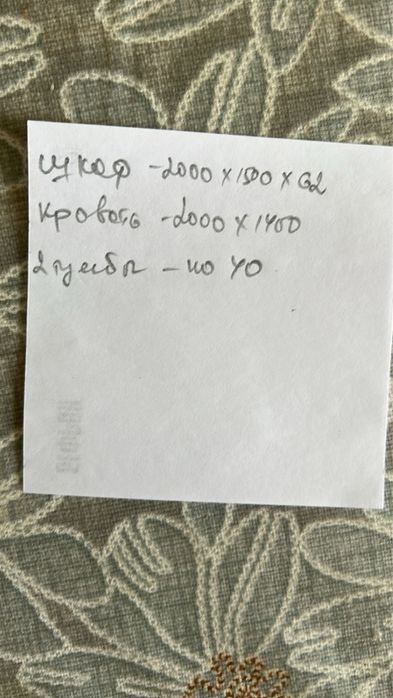 шкаф - 2000 x 1500 x 62
кровать - 2000 x 1400
2 тумбы - по 40